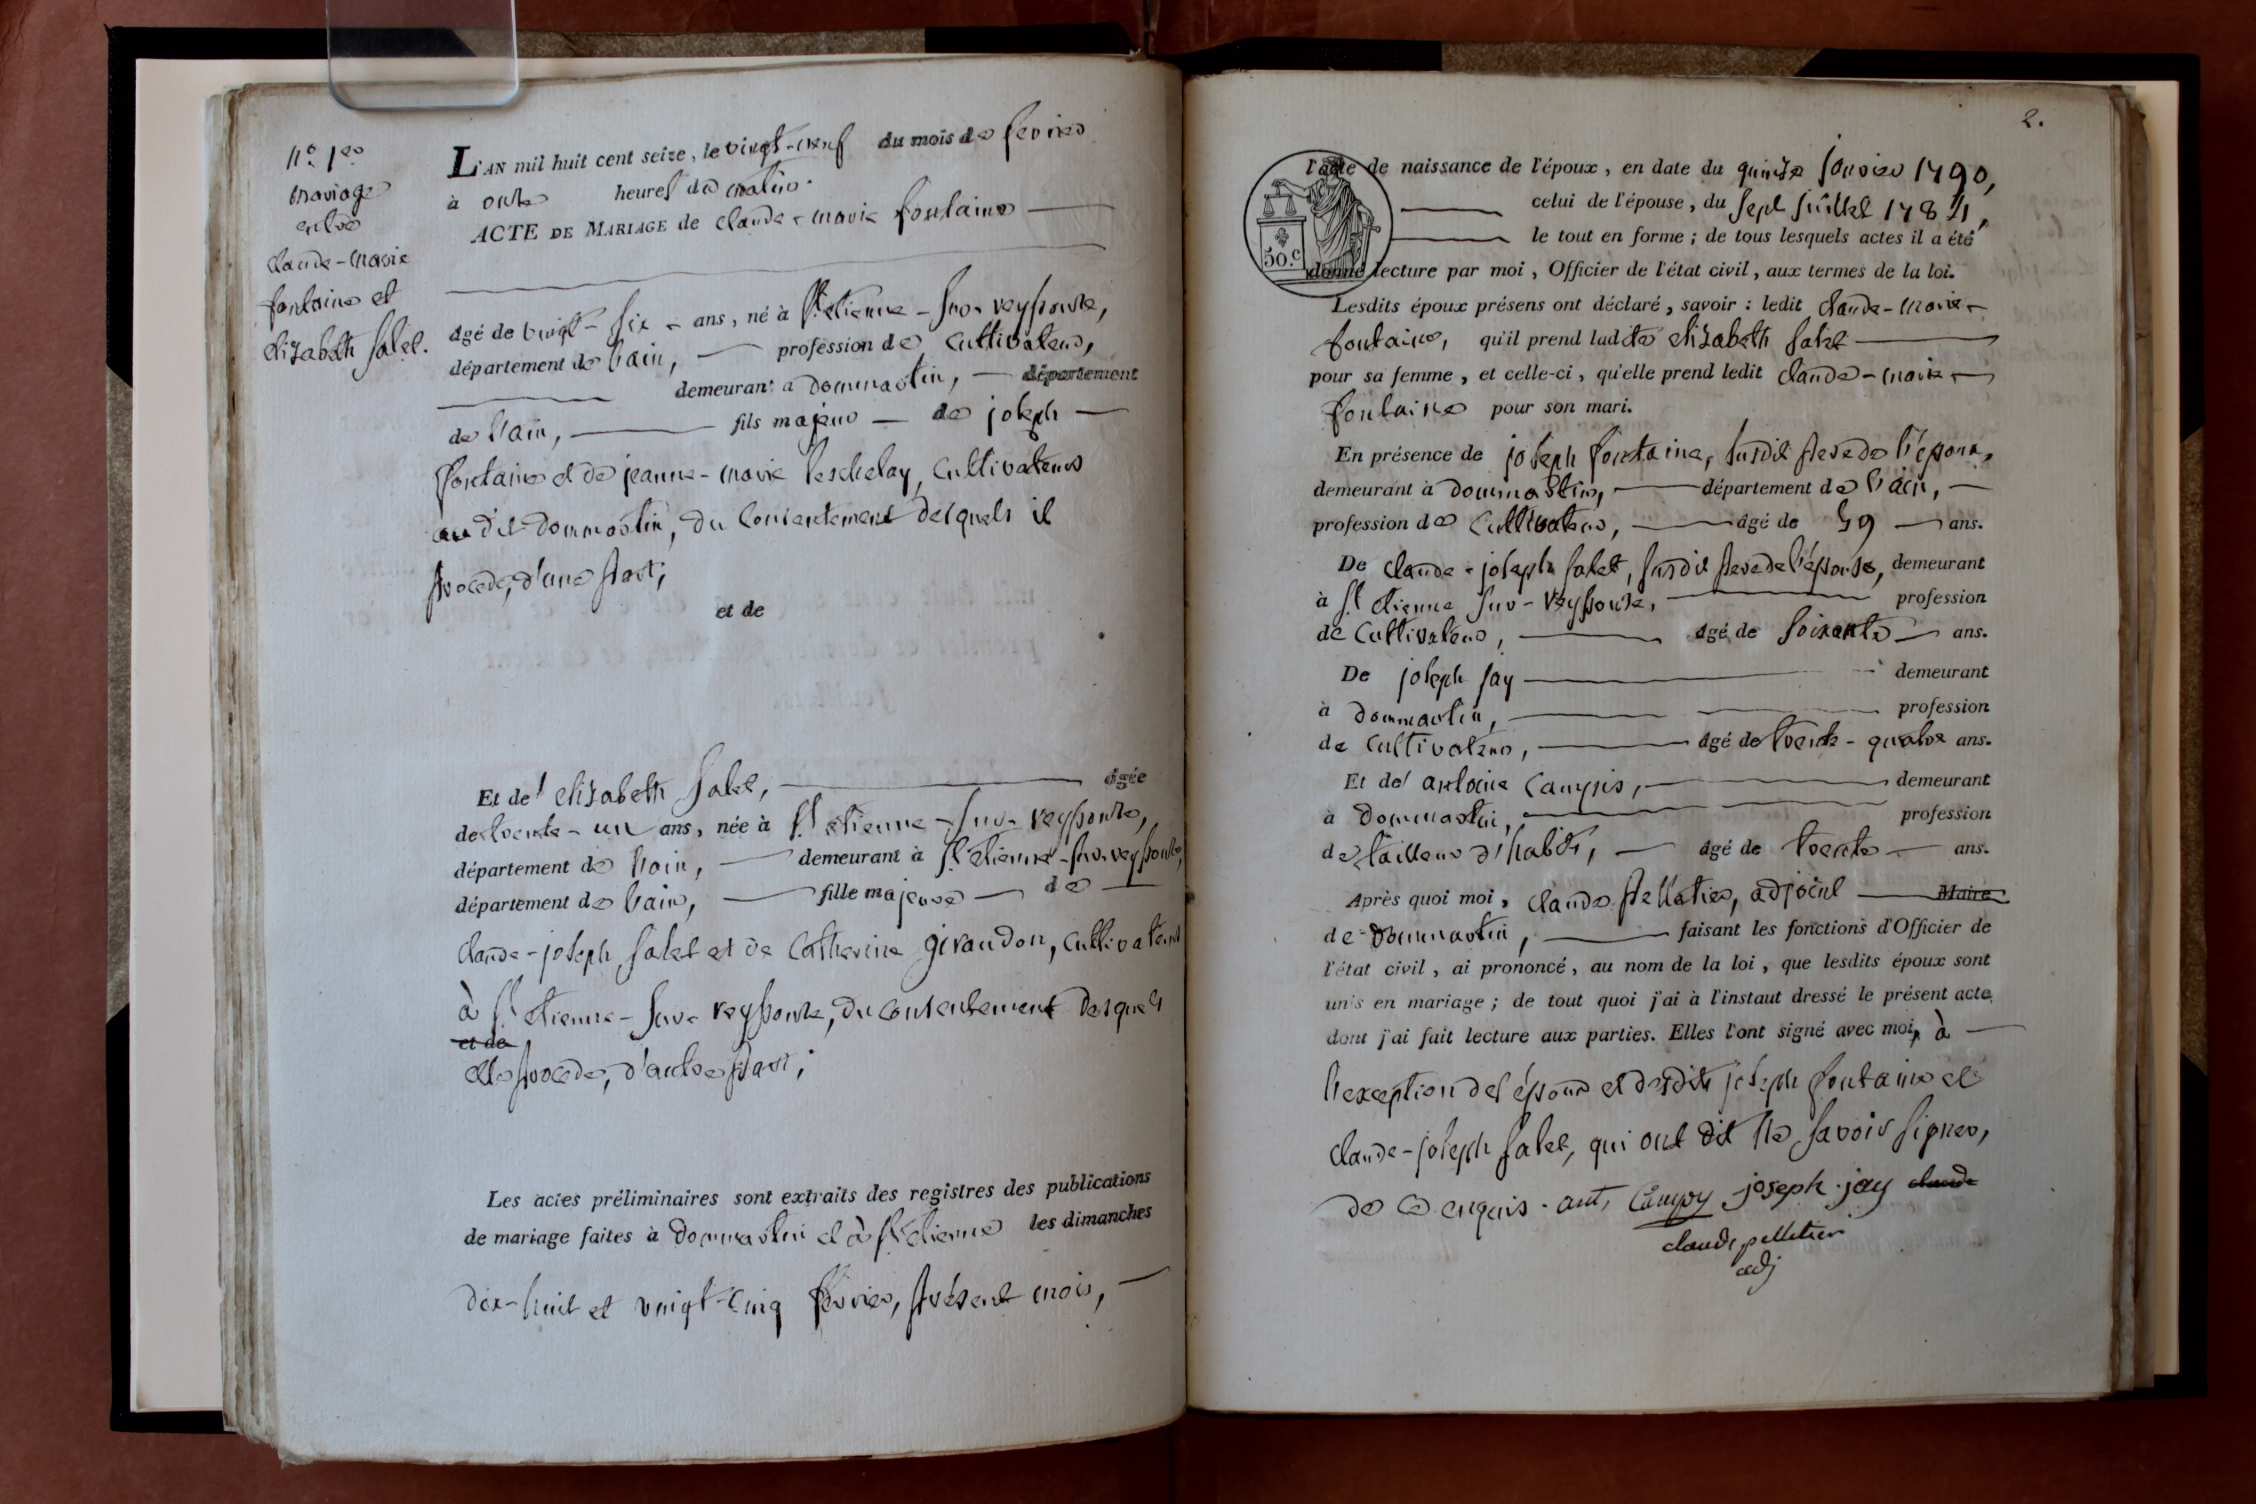 N.° 1.er
mariage
entre
claude-marie
fontaine et
elizabeth salet.
L'AN mil huit cent seize, le vingt-neuf du mois de fevrier
à onze heures du matin.
ACTE DE MARIAGE de claude-marie fontaine
âgé de vingt-six ans, né à St. etienne-sur-reyssouze,
département de l'ain, profession de cultivateur,
demeurant à dommartin, département
de l'ain, fils majeur de joseph
fontaine et de jeanne-marie cultivateurs
au dit dommartin, du consentement desquels il
procede, d'une part;
et de
Et de elizabeth salet, âgée
de trente-un ans, née à St etienne-sur-reyssouze,
département de l'ain, demeurant à St etienne-sur-reyssouze,
département de l'ain, fille majeure de
claude-joseph salet et de catherine giraudon, cultivateurs
à St. etienne-sur-reyssouze, du consentement desquels
et de
elle procede, d'autre part;
Les actes préliminaires sont extraits des registres des publications
de mariage faites à dommartin et à St etienne les dimanches
dix-huit et vingt-cinq fevrier, présent mois,
2.
50.c
l'acte de naissance de l'époux, en date du quinze janvier 1790,
celui de l'épouse, du sept juillet 1784,
le tout en forme; de tous lesquels actes il a été
donné lecture par moi, Officier de l'état civil, aux termes de la loi.
Lesdits époux présens ont déclaré, savoir: ledit claude-marie
fontaine, qu'il prend ladite elizabeth salet
pour sa femme, et celle-ci, qu'elle prend ledit claude-marie
fontaine pour son mari.
En présence de joseph fontaine, susdit pere de l'époux,
demeurant à dommartin, département de l'ain,
profession de cultivateur, âgé de 59 ans.
De claude-joseph salet, susdit pere de l'épouse, demeurant
à St etienne sur-reyssouze, profession
de cultivateur, âgé de soixante ans.
De joseph jay demeurant
à dommartin, profession
de cultivateur, âgé de trente-quatre ans.
Et de antoine demeurant
à dommartin, profession
de tailleur d'habits, âgé de trente ans.
Après quoi moi, claude pelletier, adjoint Maire
de dommartin, faisant les fonctions d'Officier de
l'état civil, ai prononcé, au nom de la loi, que lesdits époux sont
unis en mariage; de tout quoi j'ai à l'instant dressé le présent acte
dont j'ai fait lecture aux parties. Elles l'ont signé avec moi, à
l'exception des époux et desdits joseph fontaine et
claude-joseph salet, qui ont dit ne savoir signer,
de ce enquis. ant, joseph jay claude
claude pelletier
adj